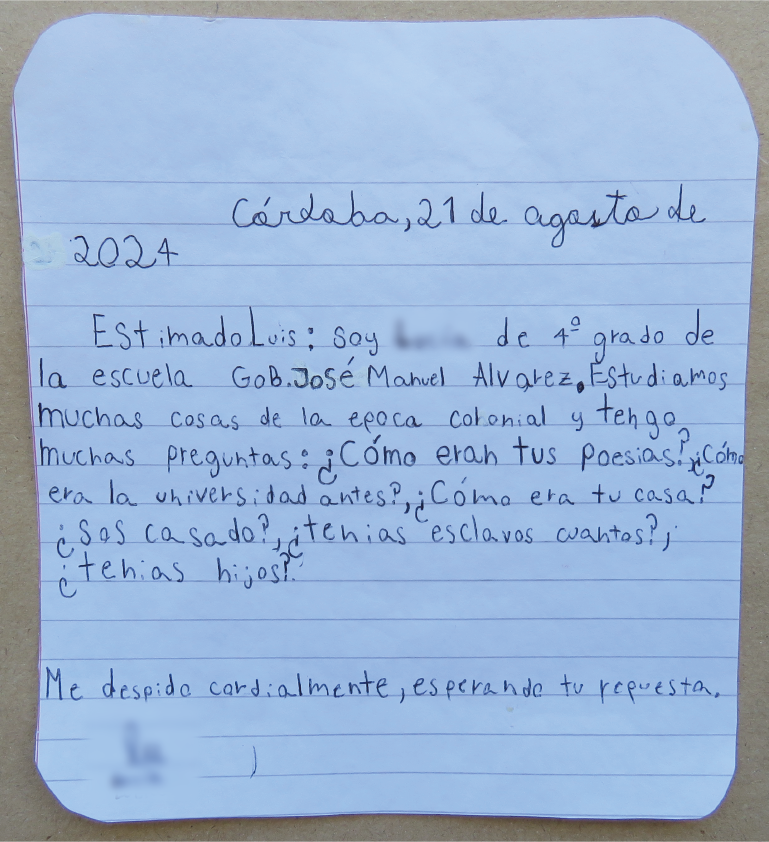 Córdoba, 21 de agosto de
2024
Estimado Luis: soy de 4º grado de
la escuela GOB. José Manuel Alvarez. Estudiamos
muchas cosas de la epoca colonial y tengo
muchas preguntas: ¿Cómo eran tus poesias?, ¿Cómo
era la universidad antes?, ¿Cómo era tu casa?
¿Sos casado?, ¿tenias esclavos cuantos?,
¿tenias hijos?.
Me despido cordialmente, esperando tu repuesta.